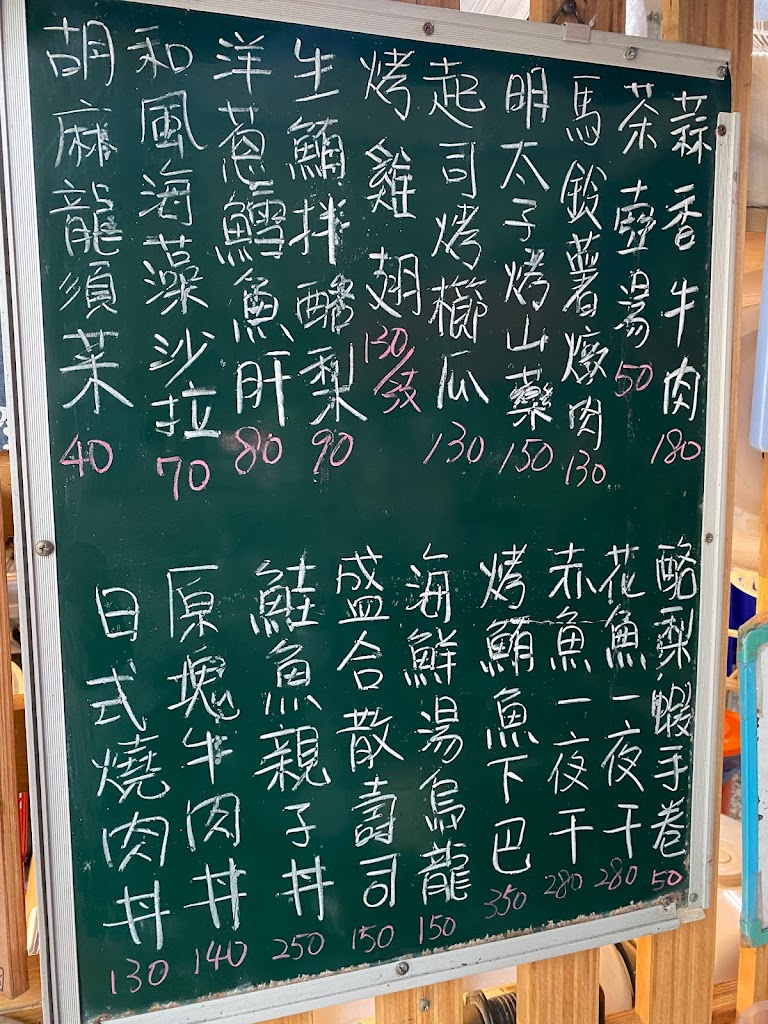 蒜香牛肉 180
茶壺湯 50
馬鈴薯燉肉 130
明太子烤山藥 150
起司烤櫛瓜 130
烤雞翅 130/支
生鮪拌酪梨 90
洋蔥鱈魚肝 80
和風海藻沙拉 70
胡麻龍須菜 40
酪梨.蝦手卷 50
花魚一夜干 280
赤魚一夜干 280
烤鮪魚下巴 350
海鮮湯烏龍 150
盛合散壽司 150
鮭魚親子丼 250
原塊牛肉丼 140
日式燒肉丼 130